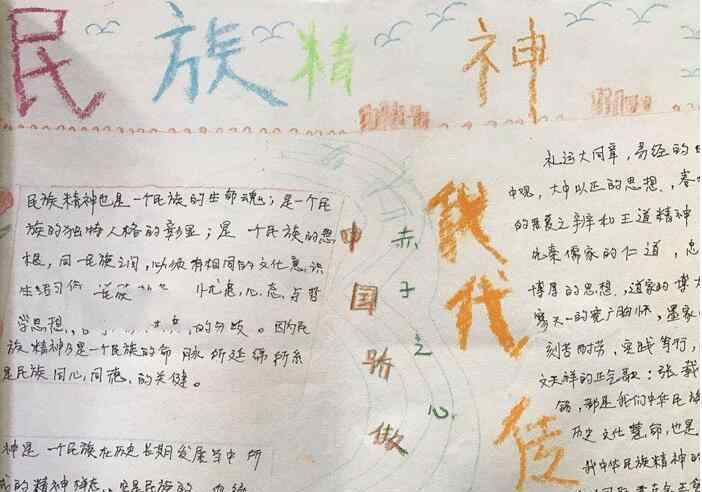 民族精神
民族精神也是一个民族的生命魂；是一个民
族的独特人格的彰显；是一个民族的思
根，同一民族之间，必须有相同的文化意识
生活习俗
心态与哲
学思想，的分歧。因为民
族精神乃是一个民族的命脉所延绵所系
是民族同心，同德，的关健。
神是一个民族在历史长期发展当中所
的精神
是民族的
中国骄傲
赤子之心
我代传
礼运大同章，易经的
中观，大中以正的思想，春
的思爱之辛辛和王道精神
先秦儒家的仁道，忠
博厚的思想，道家的博大
寥天一的宽广胸怀，墨家
刻苦耐劳，实践笃行，
文天祥的正气歌：张载
铭，都是我们中华民族
历史文化慧命，也是
我中华民族精神的